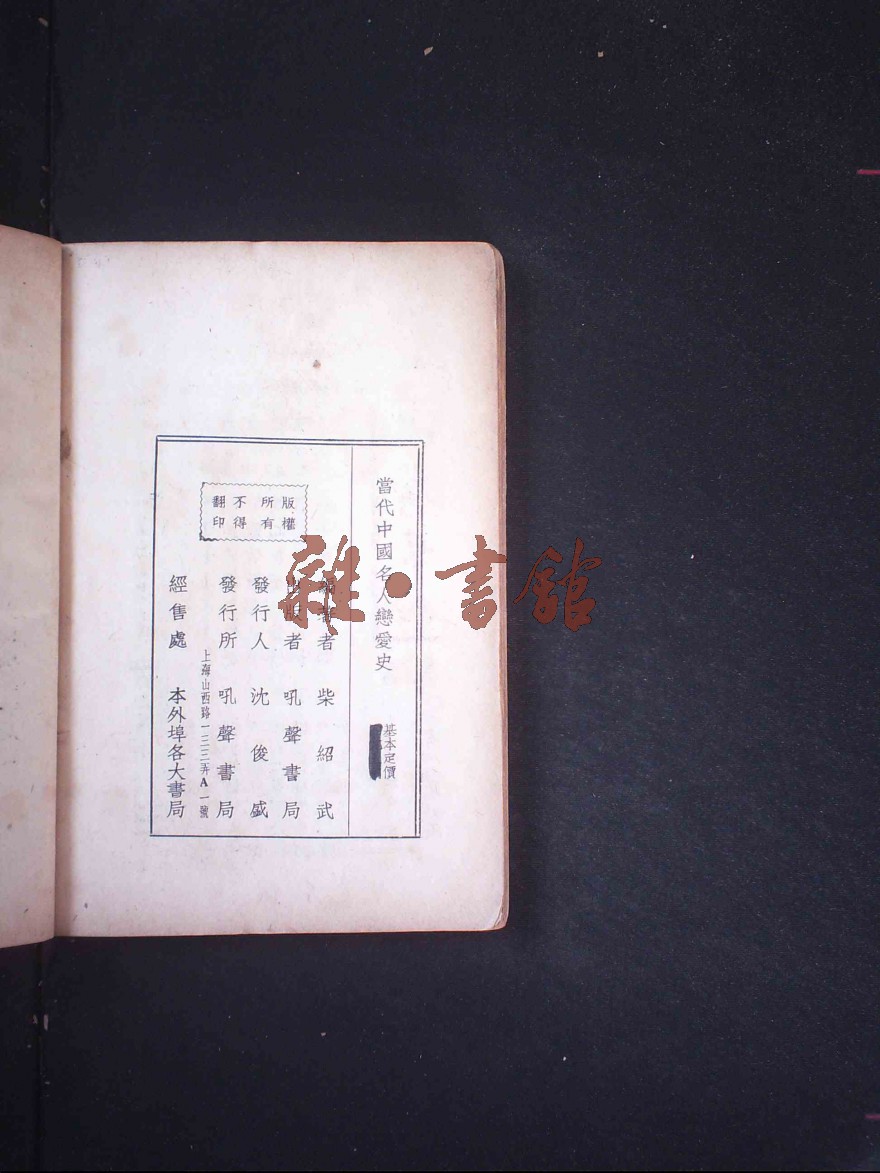 當代中國名人戀愛史
基本定價
編著者 柴紹武
出版者 吼聲書局
發行人 沈俊盛
發行所 吼聲書局
上海山西路一二二弄A一號
經售處 本外埠各大書局
版權
所有
不得
翻印
雜·書館